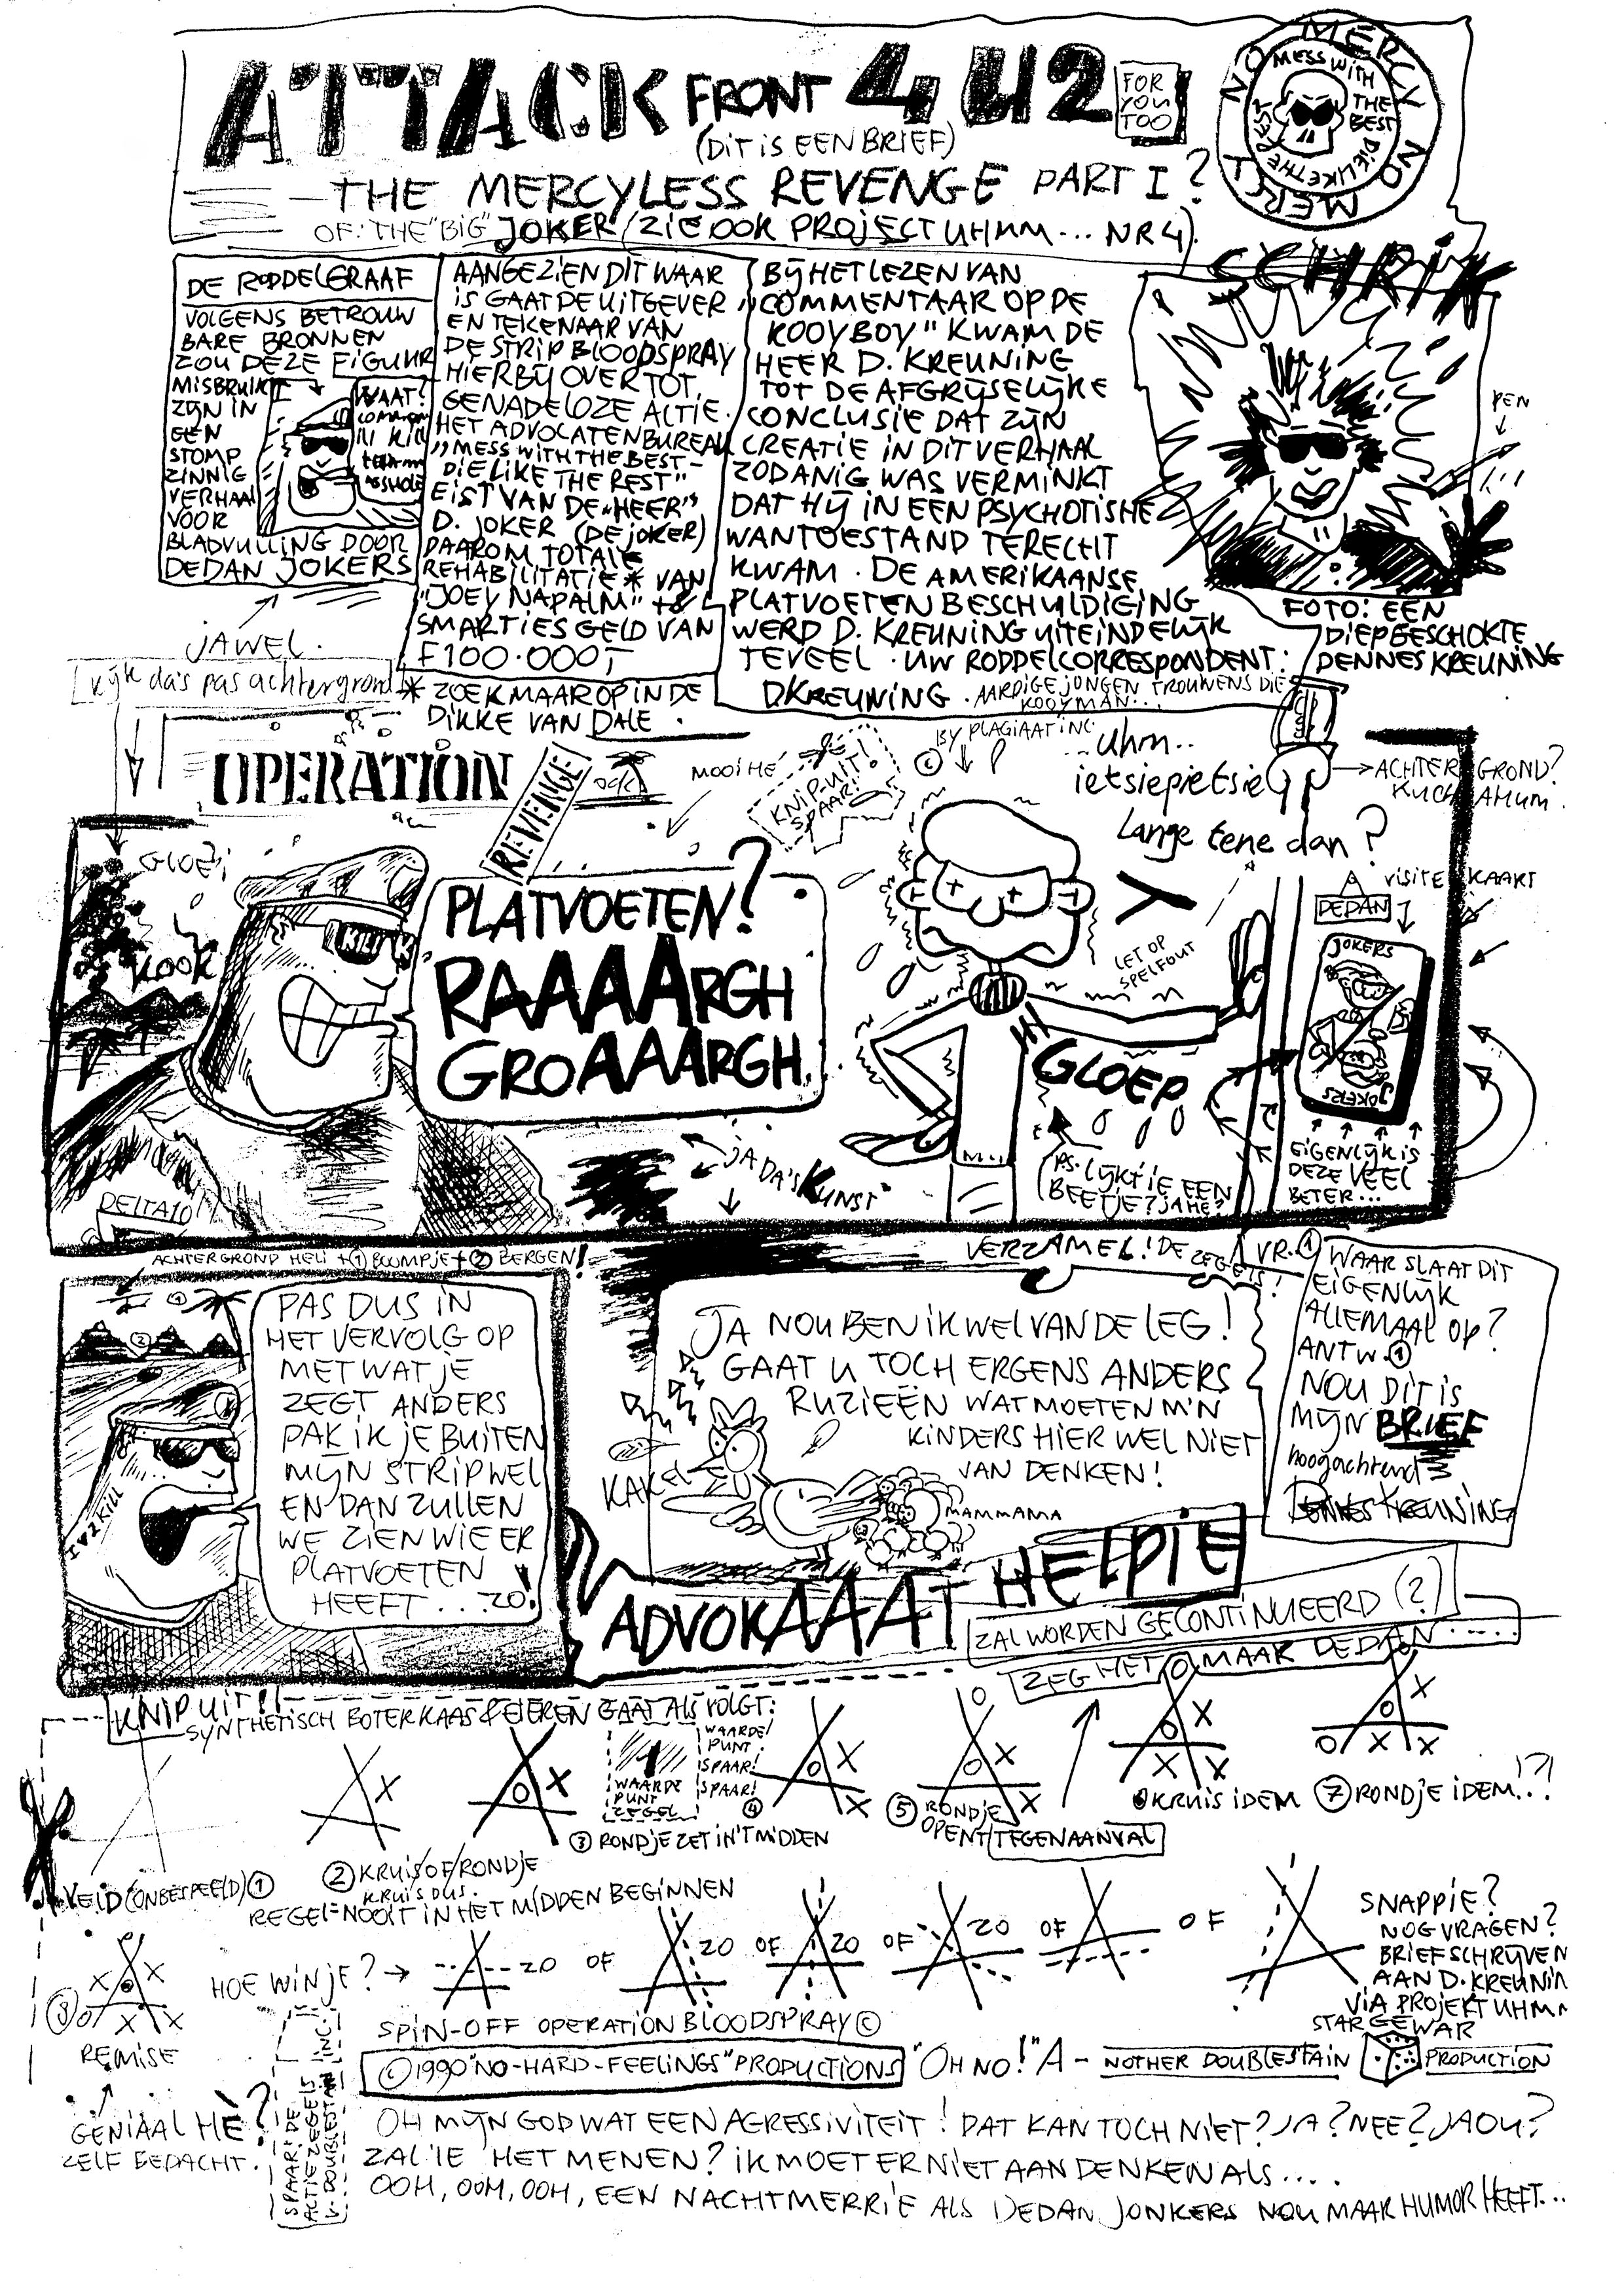 ATTACK FRONT 4 U 2
FOR
YOU
TOO
(DIT IS EEN BRIEF)
THE MERCYLESS REVENGE PART I?
OF: THE "BIG" JOKER (ZIE OOK PROJECT UHMM... NR 4).
NO MERCY NO MERCY
MESS WITH THE BEST DIE LIKE THE REST
SCHRIK
DE RODDELGRAAF
VOLGENS BETROUW
BARE BRONNEN
ZOU DEZE FIGUUR
MISBRUIKT
ZIJN IN
EEN
STOMP
ZINNIG
VERHAAL
VOOR
BLADVULLING DOOR
DEDAN JOKERS
WAAT?
JAWEL.
AANGEZIEN DIT WAAR
IS GAAT DE UITGEVER
EN TEKENAAR VAN
DE STRIP BLOODSPRAY
HIERBIJ OVER TOT
GENADELOZE AKTIE.
HET ADVOCATENBUREAU
"MESS WITH THE BEST-
DIE LIKE THE REST"
EIST VAN DE "HEER"
D. JOKER (DE JOKER)
DAAROM TOTALE
REHABILITATIE* VAN
"JOEY NAPALM" +&
SMARTIESGELD VAN
F100.000,-
* ZOEK MAAR OP IN DE
DIKKE VAN DALE.
BIJ HET LEZEN VAN
"COMMENTAAR OP DE
KOOYBOY" KWAM DE
HEER D. KREUNING
TOT DE AFGRIJSELIJKE
CONCLUSIE DAT ZIJN
CREATIE IN DIT VERHAAL
ZODANIG WAS VERMINKT
DAT HIJ IN EEN PSYCHOTISHE
WANTOESTAND TERECHT
KWAM. DE AMERIKAANSE
PLATVOETEN BESCHULDIGING
WERD D. KREUNING UITEINDELIJK
TEVEEL. UW RODDELCORRESPONDENT:
D.KREUNING. AARDIGE JONGEN TROUWENS DIE
KOOYMAN...
PEN
FOTO: EEN
DIEPGESCHOKTE
DENNES KREUNING
KIJK da's pas achtergrond
OPERATION
REVENGE
MOOI HÉ
KNIP-UIT!
SPAAR!
© BY PLAGIAAT INC.
..uhm..
ietsiepietsie
Lange tene dan?
ACHTERGROND?
KUCH AHUM.
GLOEI
KOOK
KILL
PLATVOETEN?
RAAAARGH
GROAAAARGH
LET OP
SPELFOUT
VISITEKAART
DEDAN
JOKERS
JOKERS
GLOEP
PS. LIJKT IE EEN
BEETJE? JA HE?
EIGENLIJK IS
DEZE VEEL
BETER...
JA DA'S KUNST
DELTA10
ACHTERGROND HELI + ① BOOMPJE + ② BERGEN!
PAS DUS IN
HET VERVOLG OP
MET WAT JE
ZEGT ANDERS
PAK IK JE BUITEN
MIJN STRIP WEL
EN DAN ZULLEN
WE ZIEN WIE ER
PLATVOETEN
HEEFT... ZO!
I ♥ 2 KILL
VERZAMEL! DE ZEGELS!
JA NOU BEN IK WEL VAN DE LEG!
GAAT U TOCH ERGENS ANDERS
RUZIEËN WAT MOETEN M'N
KINDERS HIER WEL NIET
VAN DENKEN!
KAKEL
MAMMAMA
VR. ① WAAR SLAAT DIT
EIGENLIJK
ALLEMAAL OP?
ANTW. ①
NOU DIT IS
MIJN BRIEF
hoogachtend
DENNES KREUNING
ADVOKAAAT HELPIE
ZAL WORDEN GECONTINUEERD (?)
ZEG HET MAAR DEDAN.....
KNIP UIT!
SYNTHETISCH BOTER KAAS & EIEREN GAAT ALS VOLGT:
VELD (ONBESPEELD) ①
② KRUIS OF/RONDJE
KRUIS DUS.
REGEL=NOOIT IN HET MIDDEN BEGINNEN
③ RONDJE ZET IN 'T MIDDEN
1
WAARDE
PUNT
ZEGEL
WAARDE/
PUNT.
SPAAR!
SPAAR!
④
⑤ RONDJE
OPENT TEGENAANVAL
KRUIS IDEM
⑦ RONDJE IDEM!?!
⑧
REMISE
HOE WIN JE? → ZO OF ZO OF ZO OF ZO OF OF
SNAPPIE?
NOG VRAGEN?
BRIEF SCHRIJVEN
AAN D. KREUNIN
VIA PROJEKT UHMM
GENIAAL HÈ?
ZELF BEDACHT.
SPAAR! DE
ACTIEZEGELS
V. DOUBLESTAIN INC.
SPIN-OFF OPERATION BLOODSPRAY ©
STARGEWAR
© 1990 "NO-HARD-FEELINGS" PRODUCTIONS "OH NO!" A - NOTHER DOUBLESTAIN PRODUCTION
OH MIJN GOD WAT EEN AGRESSIVITEIT! DAT KAN TOCH NIET? JA? NEE? JAOU?
ZAL 'IE HET MENEN? IK MOET ER NIET AAN DENKEN ALS....
OOH, OOH, OOH, EEN NACHTMERRIE ALS DEDAN JONKERS NOU MAAR HUMOR HEEFT...